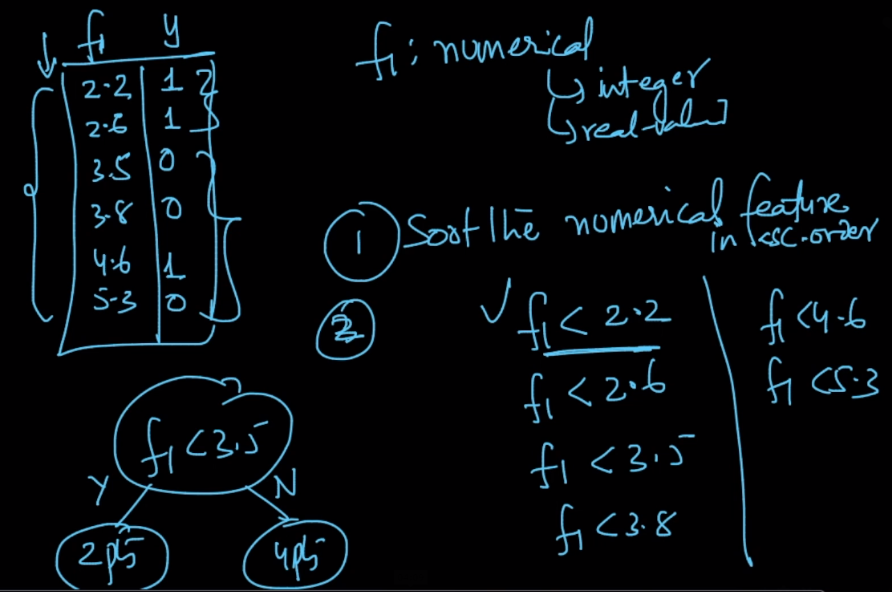 f1 y
2.2 1
2.6 1
3.5 0
3.8 0
4.6 1
5.3 0
f1 : numerical
integer
1 Sort the numerical feature
in asc. order
2
f1 < 2.2
f1 < 2.6
f1 < 3.5
f1 < 3.8
f1 < 4.6
f1 < 5.3
f1 < 3.5
Y N
2 pts 4 pts